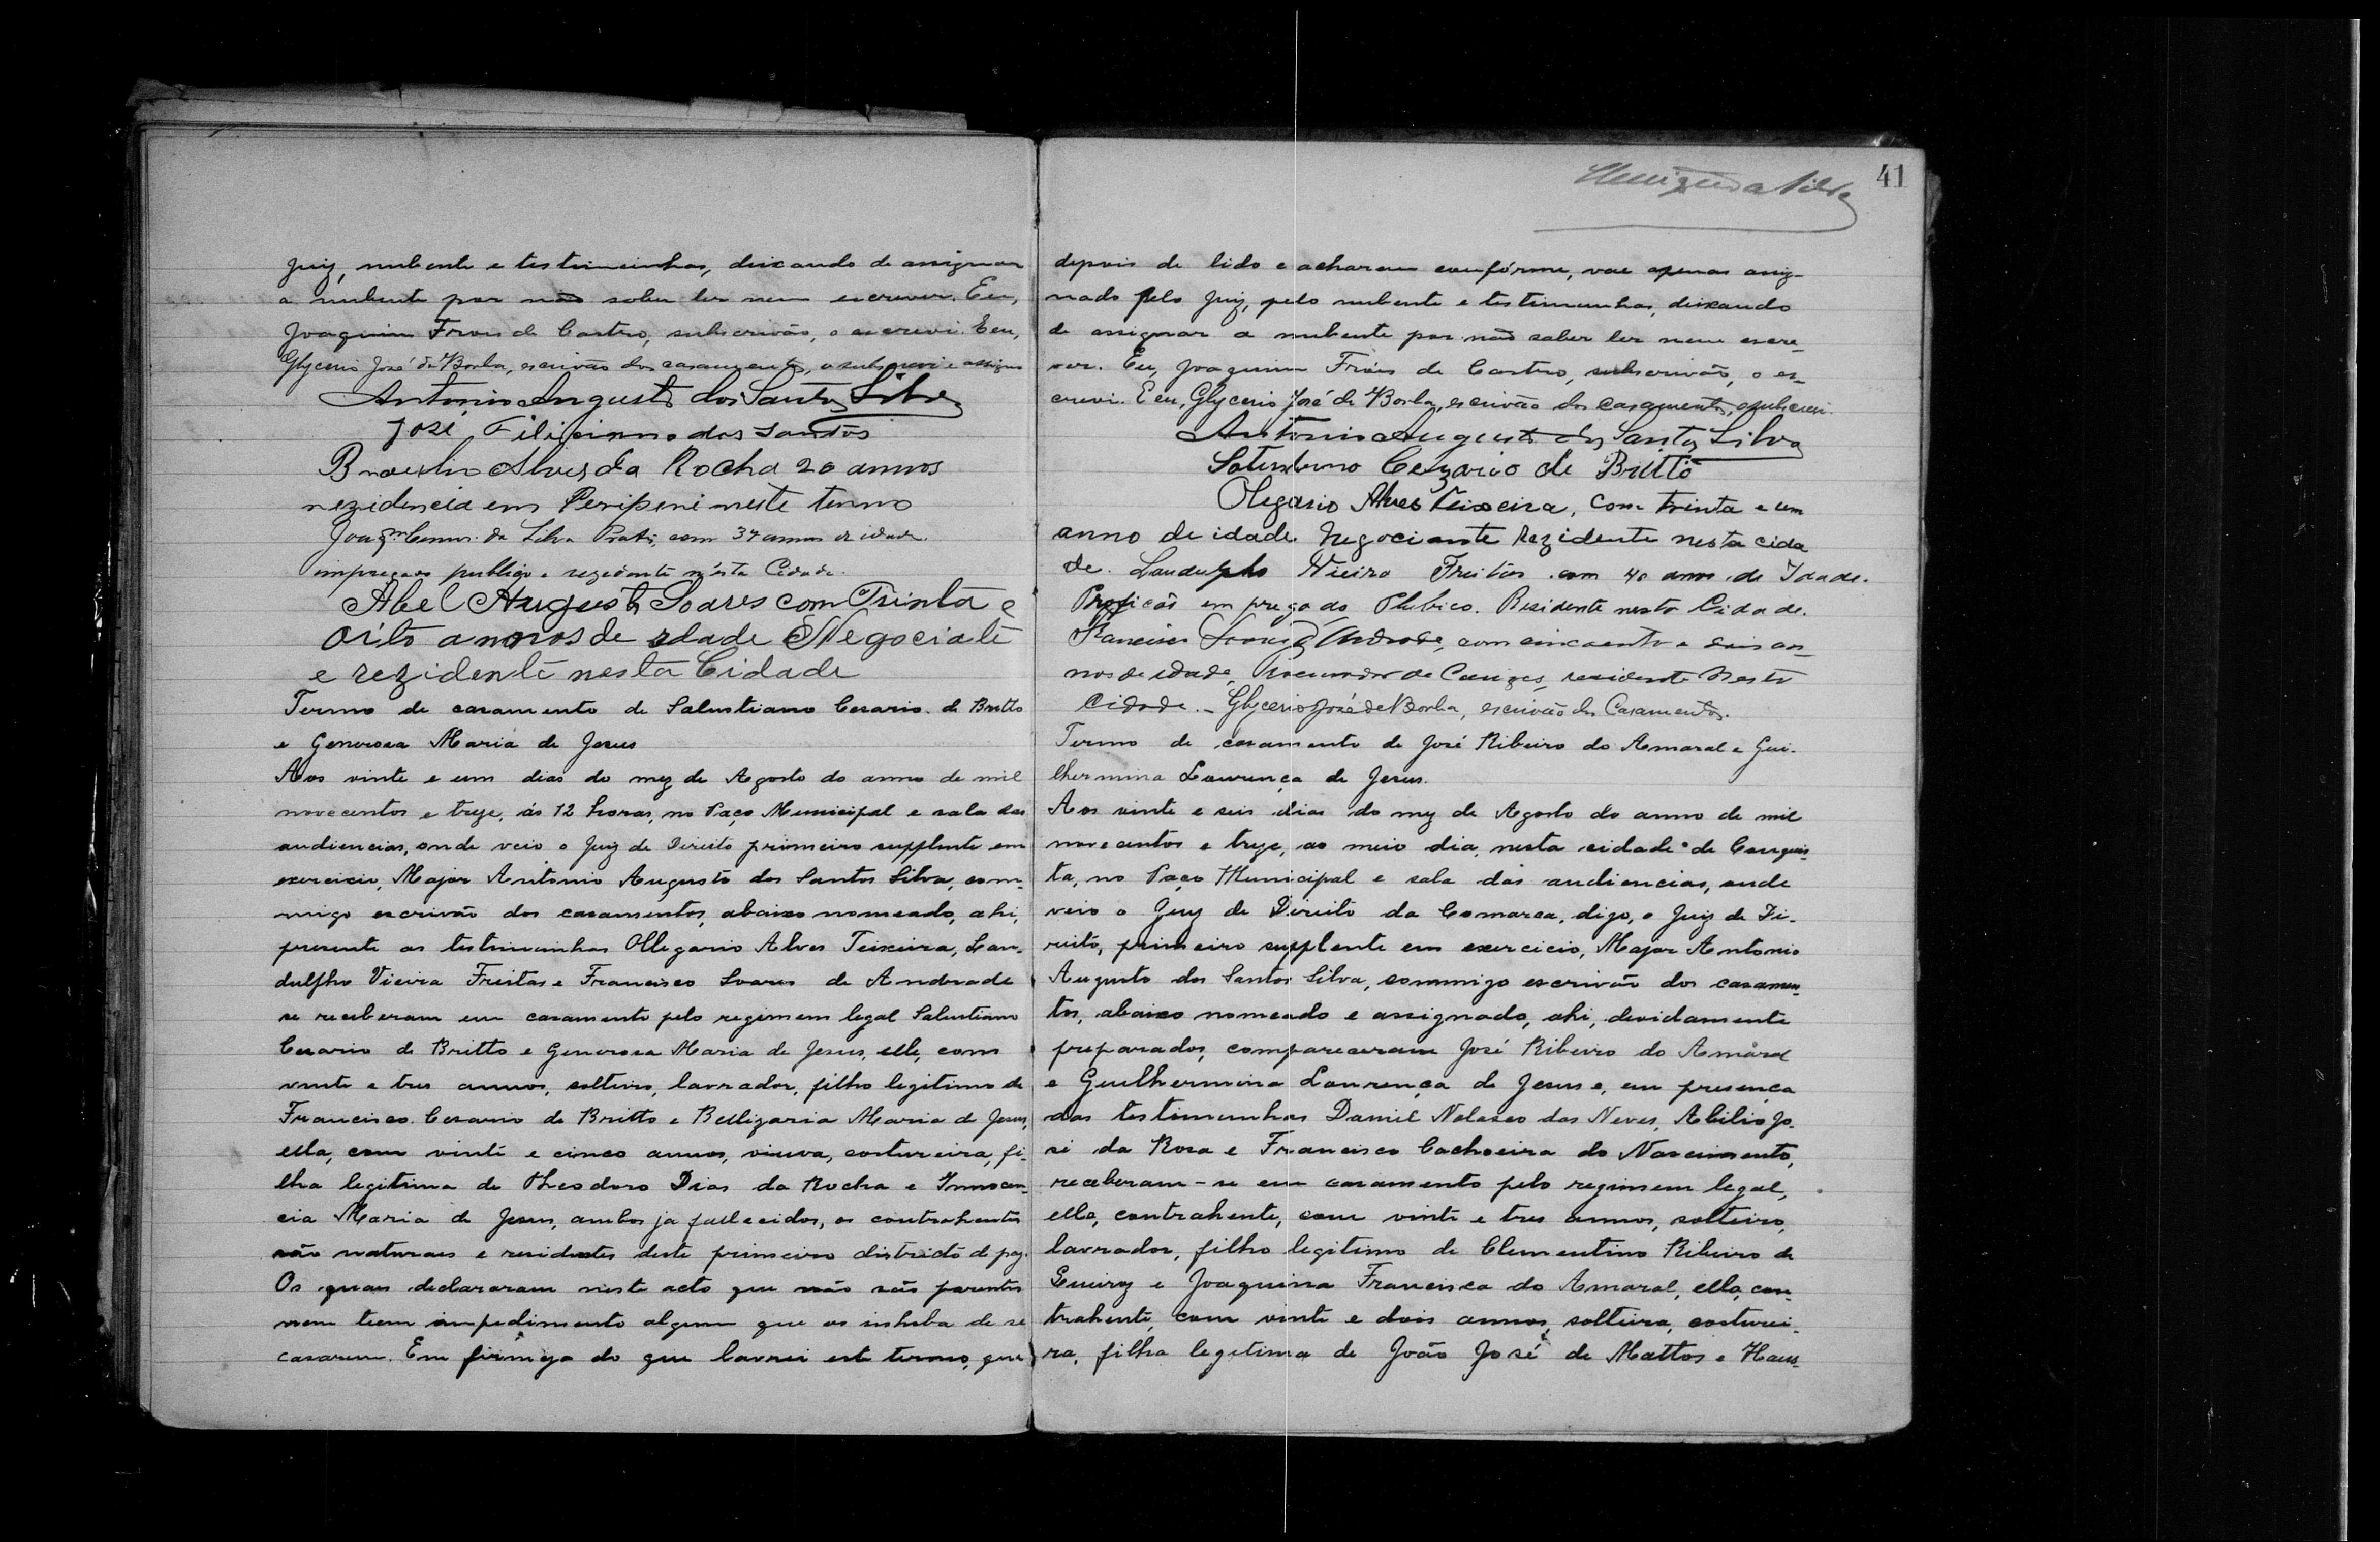 Juiz, nubente e testimunhas, deixando de assignar
a nubente por não saber ler nem escrever. Eu,
Joaquim Frois de Castro, subscrivão, o escrevi. E eu,
Glycerio José de Borba, escrivão dos casamentos, o subscrevi e assigno
Antonio Augusto dos Santos Silva
José Filicianno dos Santos
Alves da Rocha 20 annos
rezidencia em Periperi neste termo
da Silva Prates, com 34 annos de idade.
impregado publigo e rezedente n'esta Cidade.
Abel Augusto Soares com Trinta e
oito annos de idade Negociate
e rezidente nesta Cidade
Termo de casamento de Salustiano Cesario de Britto
e Generosa Maria de Jesus
Aos vinte e um dias do mez de Agosto do anno de mil
novecentos e treze, ás 12 horas, no Paço Municipal e sala das
audiencias, onde veio o Juiz de Direito primeiro supplente em
exercicio, Major Antonio Augusto dos Santos Silva, com-
migo escrivão dos casamentos, abaixo nomeado, ahi,
presente as testimunhas Ollegario Alves Teixeira, Lan-
dulfho Vieira Freitas e Francisco Soares de Andrade
se receberam em casamento pelo regimem legal Salustiano
Cesario de Britto e Generosa Maria de Jesus, elle, com
vinte e tres annos, solteiro, lavrador, filho legitimo de
Francisco Cesario de Britto e Bellizaria Maria de Jesus,
ella, com vinte e cinco annos, viuva, costureira, fi-
lha legitima de Theodoro Dias da Rocha e Innocen-
cia Maria de Jesus, ambos ja fallecidos, os contrahentes
são naturaes e residentes deste primeiro districto de paz.
Os quaes declararam neste acto que não são parentes
nem teem impedimento algum que os inhiba de se
casarem. Em firmeza do que lavrei este termo, que
41
depois de lido e acharem confórme, vae apenas assig-
nado pelo Juiz, pelo nubente e testimunhas, deixando
de assignar a nubente por não saber ler nem escre-
ver. Eu, Joaquim Fróis de Castro, subscrivão, o es-
crevi. E eu, Glycerio José de Borba, escrivão dos casamentos, o subscrevi.
Antonio Augusto dos Santos Silva
Cezario de Britto
Olegario Alves Teixeira, com trinta e um
anno de idade. Negociante Rezidente nesta cida
de. Landulpho Vieira Freitas com 40 annos de Idade.
Proficão em pregado Plubico. Residente nesta Cidade.
Francisco Soares d'Andrade, com cincoenta e dois an-
nos de idade, Procurador de Cauzas, residente Nesta
Cidade. - Glycerio José de Borba, escrivão dos Casamentos.
Termo de casamento de José Ribeiro do Amaral e Gui-
lhermina Lourença de Jesus.
Aos vinte e seis dias do mez de Agosto do anno de mil
novecentos e treze, ao meio dia, nesta cidade de Conquis-
ta, no Paço Municipal e sala das audiencias, onde
veio o Juiz de Direito da Comarca, digo, o Juiz de Di-
reito, primeiro supplente em exercicio, Major Antonio
Augusto dos Santos Silva, commigo escrivão dos casamen-
tos, abaixo nomeado e assignado, ahi, devidamente
preparados, compareceram José Ribeiro do Amaral
e Guilhermina Lourença de Jesus e, em presença
das testimunhas Daniel Nolasco das Neves, Abilio Jo-
sé da Rosa e Francisco Cachoeira do Nascimento,
receberam-se em casamento pelo regimem legal,
elle, contrahente, com vinte e tres annos, solteiro,
lavrador, filho legitimo de Clementino Ribeiro de
Queiroz e Joaquina Francisca do Amaral, ella, con-
trahente, com vinte e dois annos, solteira, costurei-
ra, filha legitima de João José de Mattos e